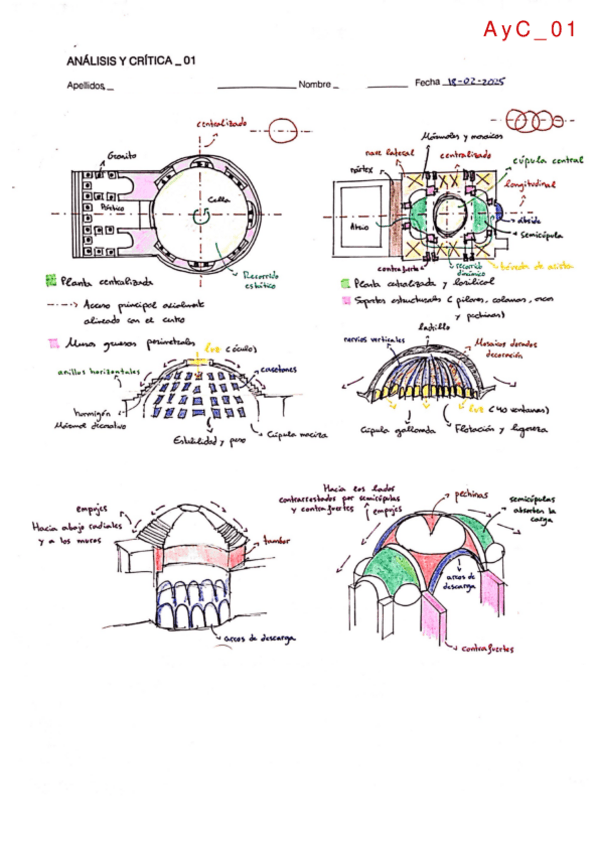 AyC_01
ANÁLISIS Y CRÍTICA _ 01
Apellidos _ Nombre _ Fecha 18-02-2025
centralizado
Granito
Pórtico
Cella
Recorrido
estático
Planta centralizada
Acceso principal axialmente
alineado con el centro
Muros gruesos perimetrales
Mármoles y mosaicos
nave lateral
centralizado
cúpula central
nártex
longitudinal
Atrio
ábside
semicúpula
contrafuerte
recorrido
dinámico
bóveda de arista
Planta centralizada y basilical
Soportes estructurales (pilares, columnas, arcos
y pechinas)
luz (óculo)
anillos horizontales
casetones
hormigón
Mármol decorativo
Estabilidad y peso
Cúpula maciza
ladrillo
nervios verticales
Mosaicos dorados
decoración
luz (40 ventanas)
Cúpula gallonada
Flotación y ligereza
empujes
Hacia abajo radiales
y a los muros
tambor
arcos de descarga
Hacia los lados
contrarrestados por semicúpulas
y contrafuertes
empujes
pechinas
semicúpulas
absorben la
carga
arcos de
descarga
contrafuertes